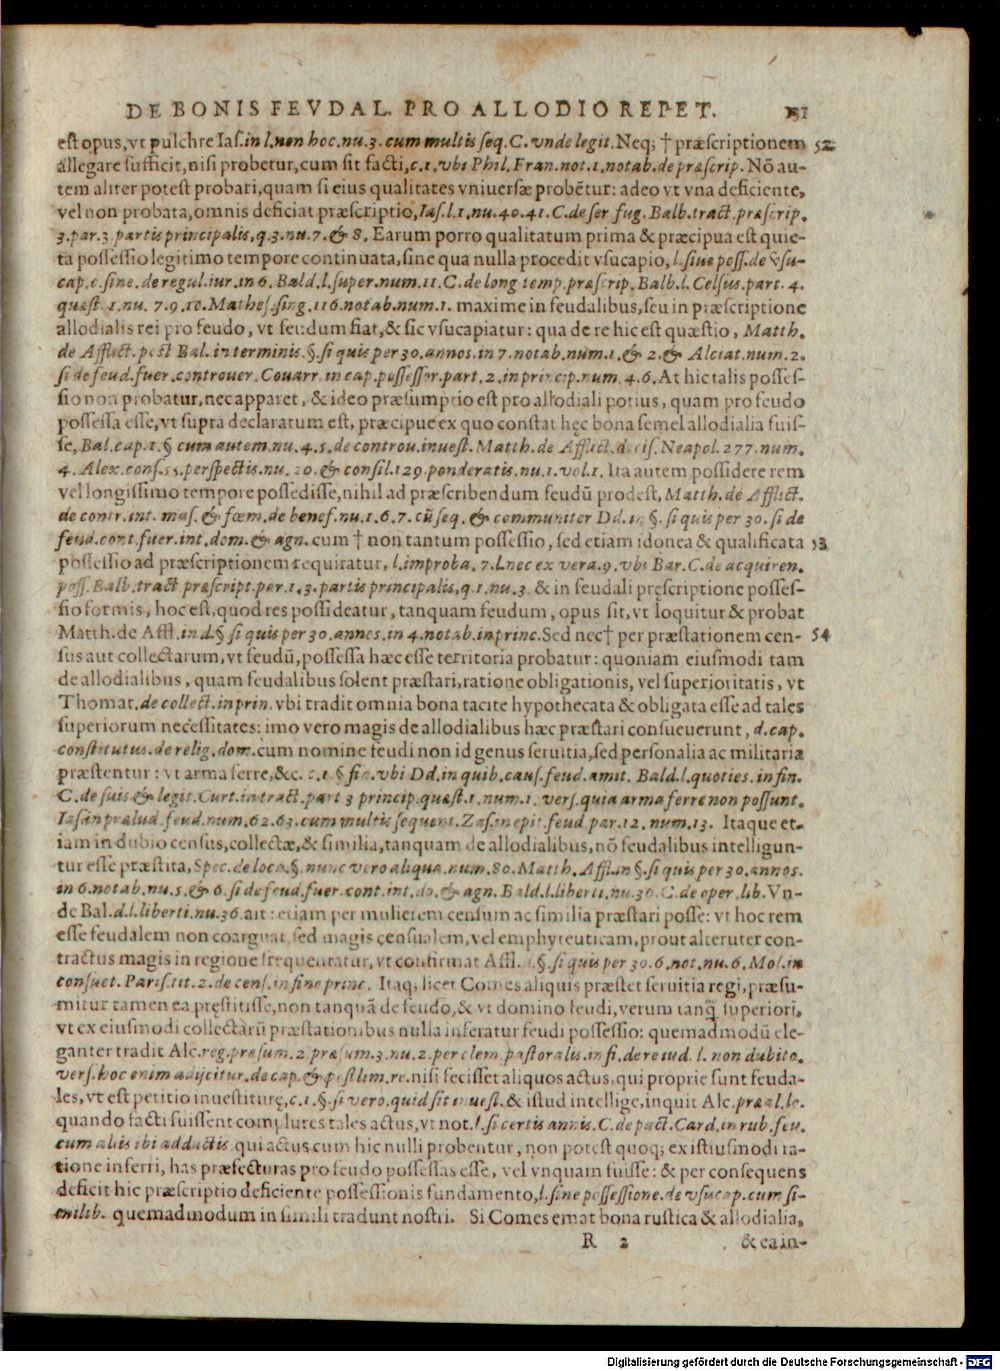 DE BONIS FEVDAL. PRO ALLODIO REPET. 131
est opus, vt pulchre Ias. in l. non hoc. nu. 3. cum multis seq. C. vnde legit. Neq; † præscriptionem 52
allegare sufficit, nisi probetur, cum sit facti, c. 1. vbi Phil. Fran. not. 1. notab. de præscrip. Nō au-
tem aliter potest probari, quam si eius qualitates vniuersæ probētur: adeo vt vna deficiente,
vel non probata, omnis deficiat præscriptio, Ias. l. 1. nu. 40. 41. C. de ser fug. Balb. tract. præscrip.
3. par. 3 partis principalis, q. 3. nu. 7. & 8. Earum porro qualitatum prima & præcipua est quie-
ta possessio legitimo tempore continuata, sine qua nulla procedit vsucapio, l. sine poss. de vsu-
cap. c. sine. de regul. iur. in 6. Bald. l. super. num. 11. C. de long temp. præscrip. Balb. l. Celsus. part. 4.
quæst. 1. nu. 7. 9. 10. Mathes. sing. 116. notab. num. 1. maxime in feudalibus, seu in præscriptione
allodialis rei pro feudo, vt feudum fiat, & sic vsucapiatur: qua de re hic est quæstio, Matth.
de Afflict. post Bal. in terminis. §. si quis per 30. annos. in 7. notab. num. 1. & 2. & Alciat. num. 2.
si de feud. fuer. controuer. Couarr. in cap. possessor. part. 2. in princip. num. 4. 6. At hic talis posses-
sio non probatur, nec apparet, & ideo præsumptio est pro allodiali potius, quam pro feudo
possessa esse, vt supra declaratum est, præcipue ex quo constat hęc bona semel allodialia fuis-
se, Bal. cap. 1. § cum autem. nu. 4. 5. de controu. inuest. Matth. de Afflict. decis. Neapol. 277. num.
4. Alex. cons. 55. perspectis. nu. 20. & consil. 129. ponderatis. nu. 1. vol. 1. Ita autem possidere rem
vel longissimo tempore possedisse, nihil ad præscribendum feudū prodest, Matth. de Afflict.
de contr. int. mas. & fœm. de benef. nu. 1. 6. 7. cū seq. & communiter Dd. in §. si quis per 30. si de
feud. cont. fuer. int. dom. & agn. cum † non tantum possessio, sed etiam idonea & qualificata 53
possessio ad præscriptionem requiratur, l. improba. 7. l. nec ex vera. 9. vbi Bar. C. de acquiren.
poss. Balb. tract præscript. per. 1. 3. partis principalis, q. 1. nu. 3. & in feudali pręscriptione posses-
sio formis, hoc est, quod res possideatur, tanquam feudum, opus sit, vt loquitur & probat
Matth. de Affl. in d. § si quis per 30. annos. in 4. notab. in princ. Sed nec † per præstationem cen- 54
sus aut collectarum, vt feudū, possessa hæc esse territoria probatur: quoniam eiusmodi tam
de allodialibus, quam feudalibus solent præstari, ratione obligationis, vel superioritatis, vt
Thomat. de collect. in prin. vbi tradit omnia bona tacite hypothecata & obligata esse ad tales
superiorum necessitates: imo vero magis de allodialibus hæc præstari consueuerunt, d. cap.
constitutus. de relig. dom. cum nomine feudi non id genus seruitia, sed personalia ac militaria
præstentur: vt arma ferre, &c. c. 1. § fin. vbi Dd. in quib. caus. feud. amit. Bald. l. quoties. in fin.
C. de suis & legit. Curt. in tract. part 3 princip. quæst. 1. num. 1. vers. quia arma ferre non possunt.
Ias. in prælud. feud. num. 62. 63. cum multis sequent. Zas. in epit. feud par. 12. num. 13. Itaque et-
iam in dubio census, collectæ, & similia, tanquam de allodialibus, nō feudalibus intelligun-
tur esse præstita, Spec. de loca. §. nunc vero aliqua. num. 80. Matth. Affl. in §. si quis per 30. annos.
in 6. notab. nu. 5. & 6. si de feud. fuer. cont. int. do. & agn. Bald. l. liberti. nu. 36. C. de oper. lib. Vn-
de Bal. d. l. liberti. nu. 36. ait: etiam per mulierem censum ac similia præstari posse: vt hoc rem
esse feudalem non coarguat, sed magis censualem, vel emphyteuticam, prout alteruter con-
tractus magis in regione frequentatur, vt confirmat Affl. §. si quis per 30. 6. not. nu. 6. Mol. in
consuet. Paris. tit. 2. de cens. in fine princ. Itaq; licet Comes aliquis præstet seruitia regi, præsu-
mitur tamen ea pręstitisse, non tanquā de feudo, & vt domino feudi, verum tanq̃ superiori,
vt ex eiusmodi collectarū præstationibus nulla inferatur feudi possessio: quemadmodū ele-
ganter tradit Alc. reg. præsum. 2. præsum. 3. nu. 2. per clem. pastoralis. in fi. de re iud. l. non dubito.
vers. hoc enim adijcitur. de cap. & postlim. re. nisi fecisset aliquos actus, qui proprie sunt feuda-
les, vt est petitio inuestiturę, c. 1. §. si vero. quid sit inuest. & istud intellige, inquit Alc. præal. lo.
quando facti fuissent complures tales actus, vt not. l. si certis annis. C. de pact. Card. in rub. feu.
cum aliis ibi adductis. qui actus cum hic nulli probentur, non potest quoq; existiusmodi ra-
tione inferri, has præfecturas pro feudo possessas esse, vel vnquam fuisse: & per consequens
deficit hic præscriptio deficiente possessionis fundamento, l. sine possessione. de vsucap. cum si-
milib. quemadmodum in simili tradunt nostri. Si Comes emat bona rustica & allodialia,
R 2 & ea in-
Digitalisierung gefördert durch die Deutsche Forschungsgemeinschaft - DFG